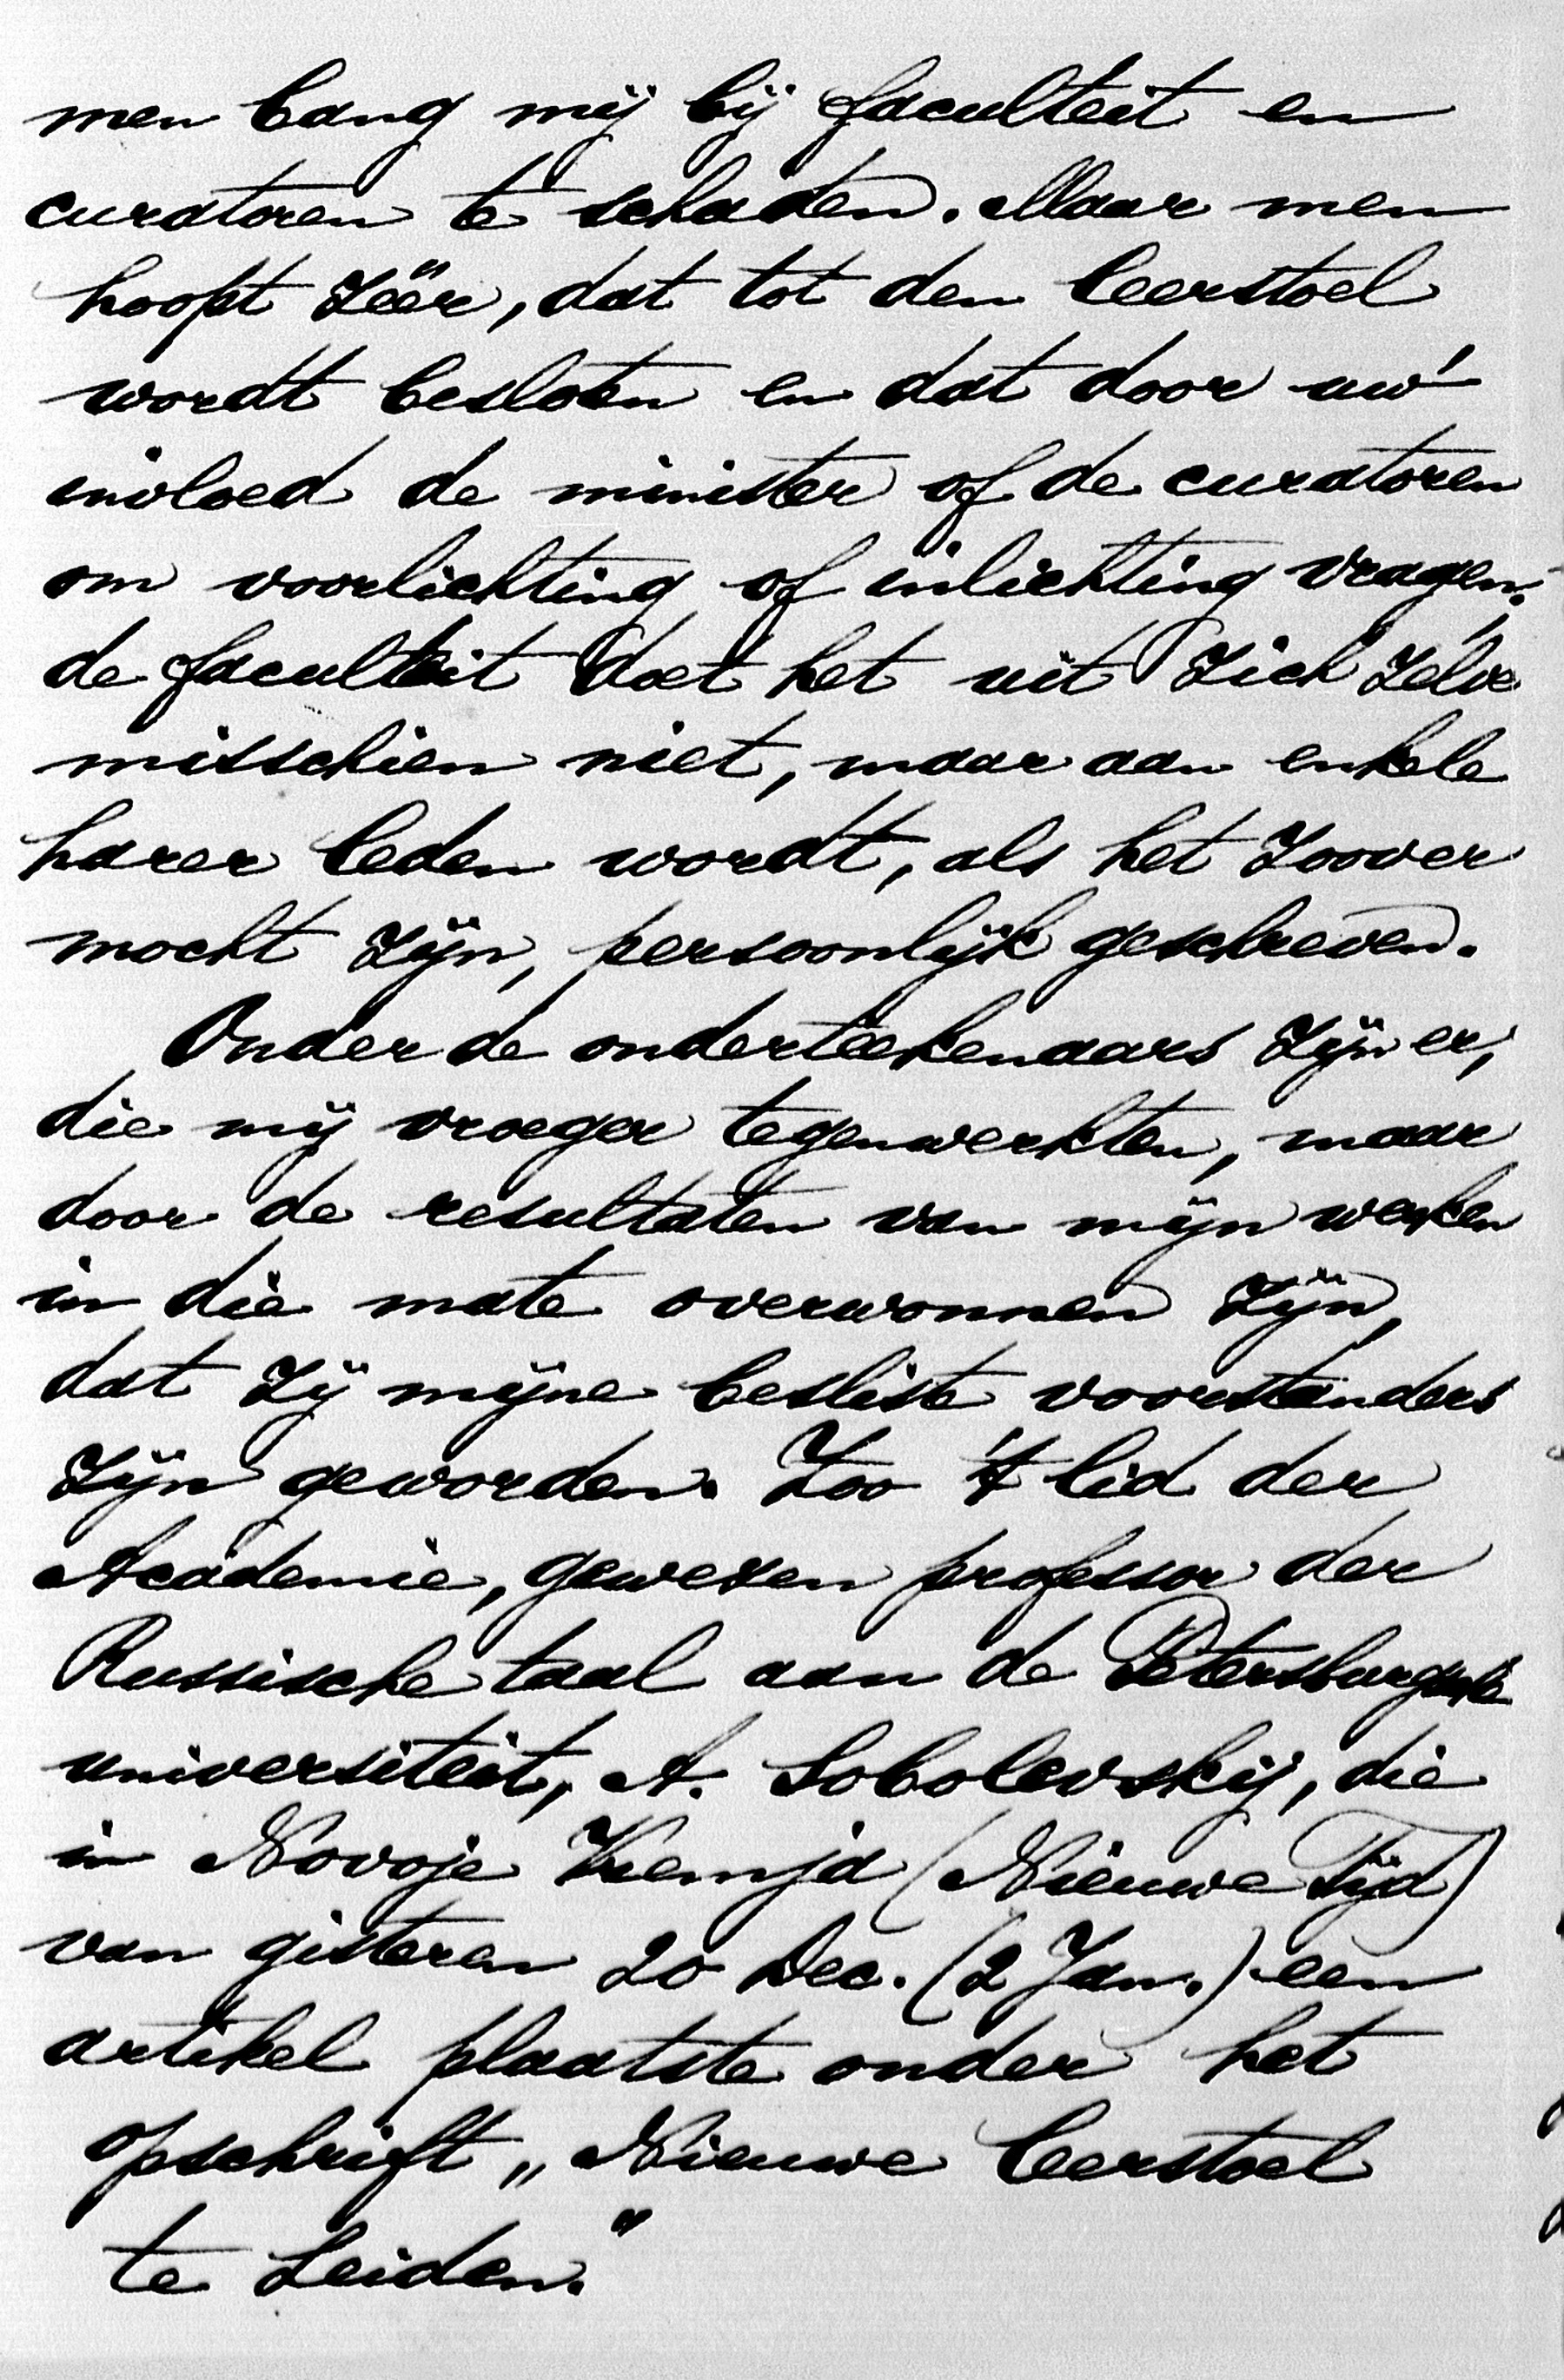 men bang mij bij faculteit en
curatoren te schaden. Maar men
hoopt zéér, dat tot den leerstoel
wordt besloten en dat door uw
invloed de minister of de curatoren
om voorlichting of inlichting vragen;
de faculteit doet het uit zich zelve
misschien niet, maar aan enkele
harer leden wordt, als het zoover
mocht zijn, persoonlijk geschreven.
Onder de onderteekenaars zijn er,
die mij vroeger tegenwerkten, maar
door de resultaten van mijn werken
in die mate overwonnen zijn,
dat zij mijne besliste voorstanders
zijn geworden. Zoo 't lid der
Academie, gewezen professor der
Russische taal aan de Petersburgsche
universiteit, A. Sobolevskij, die
in Novoje Vremja (Nieuwe Tijd)
van gisteren 20 Dec. (2 Jan.) een
artikel plaatste onder het
opschrift „Nieuwe leerstoel
te Leiden."